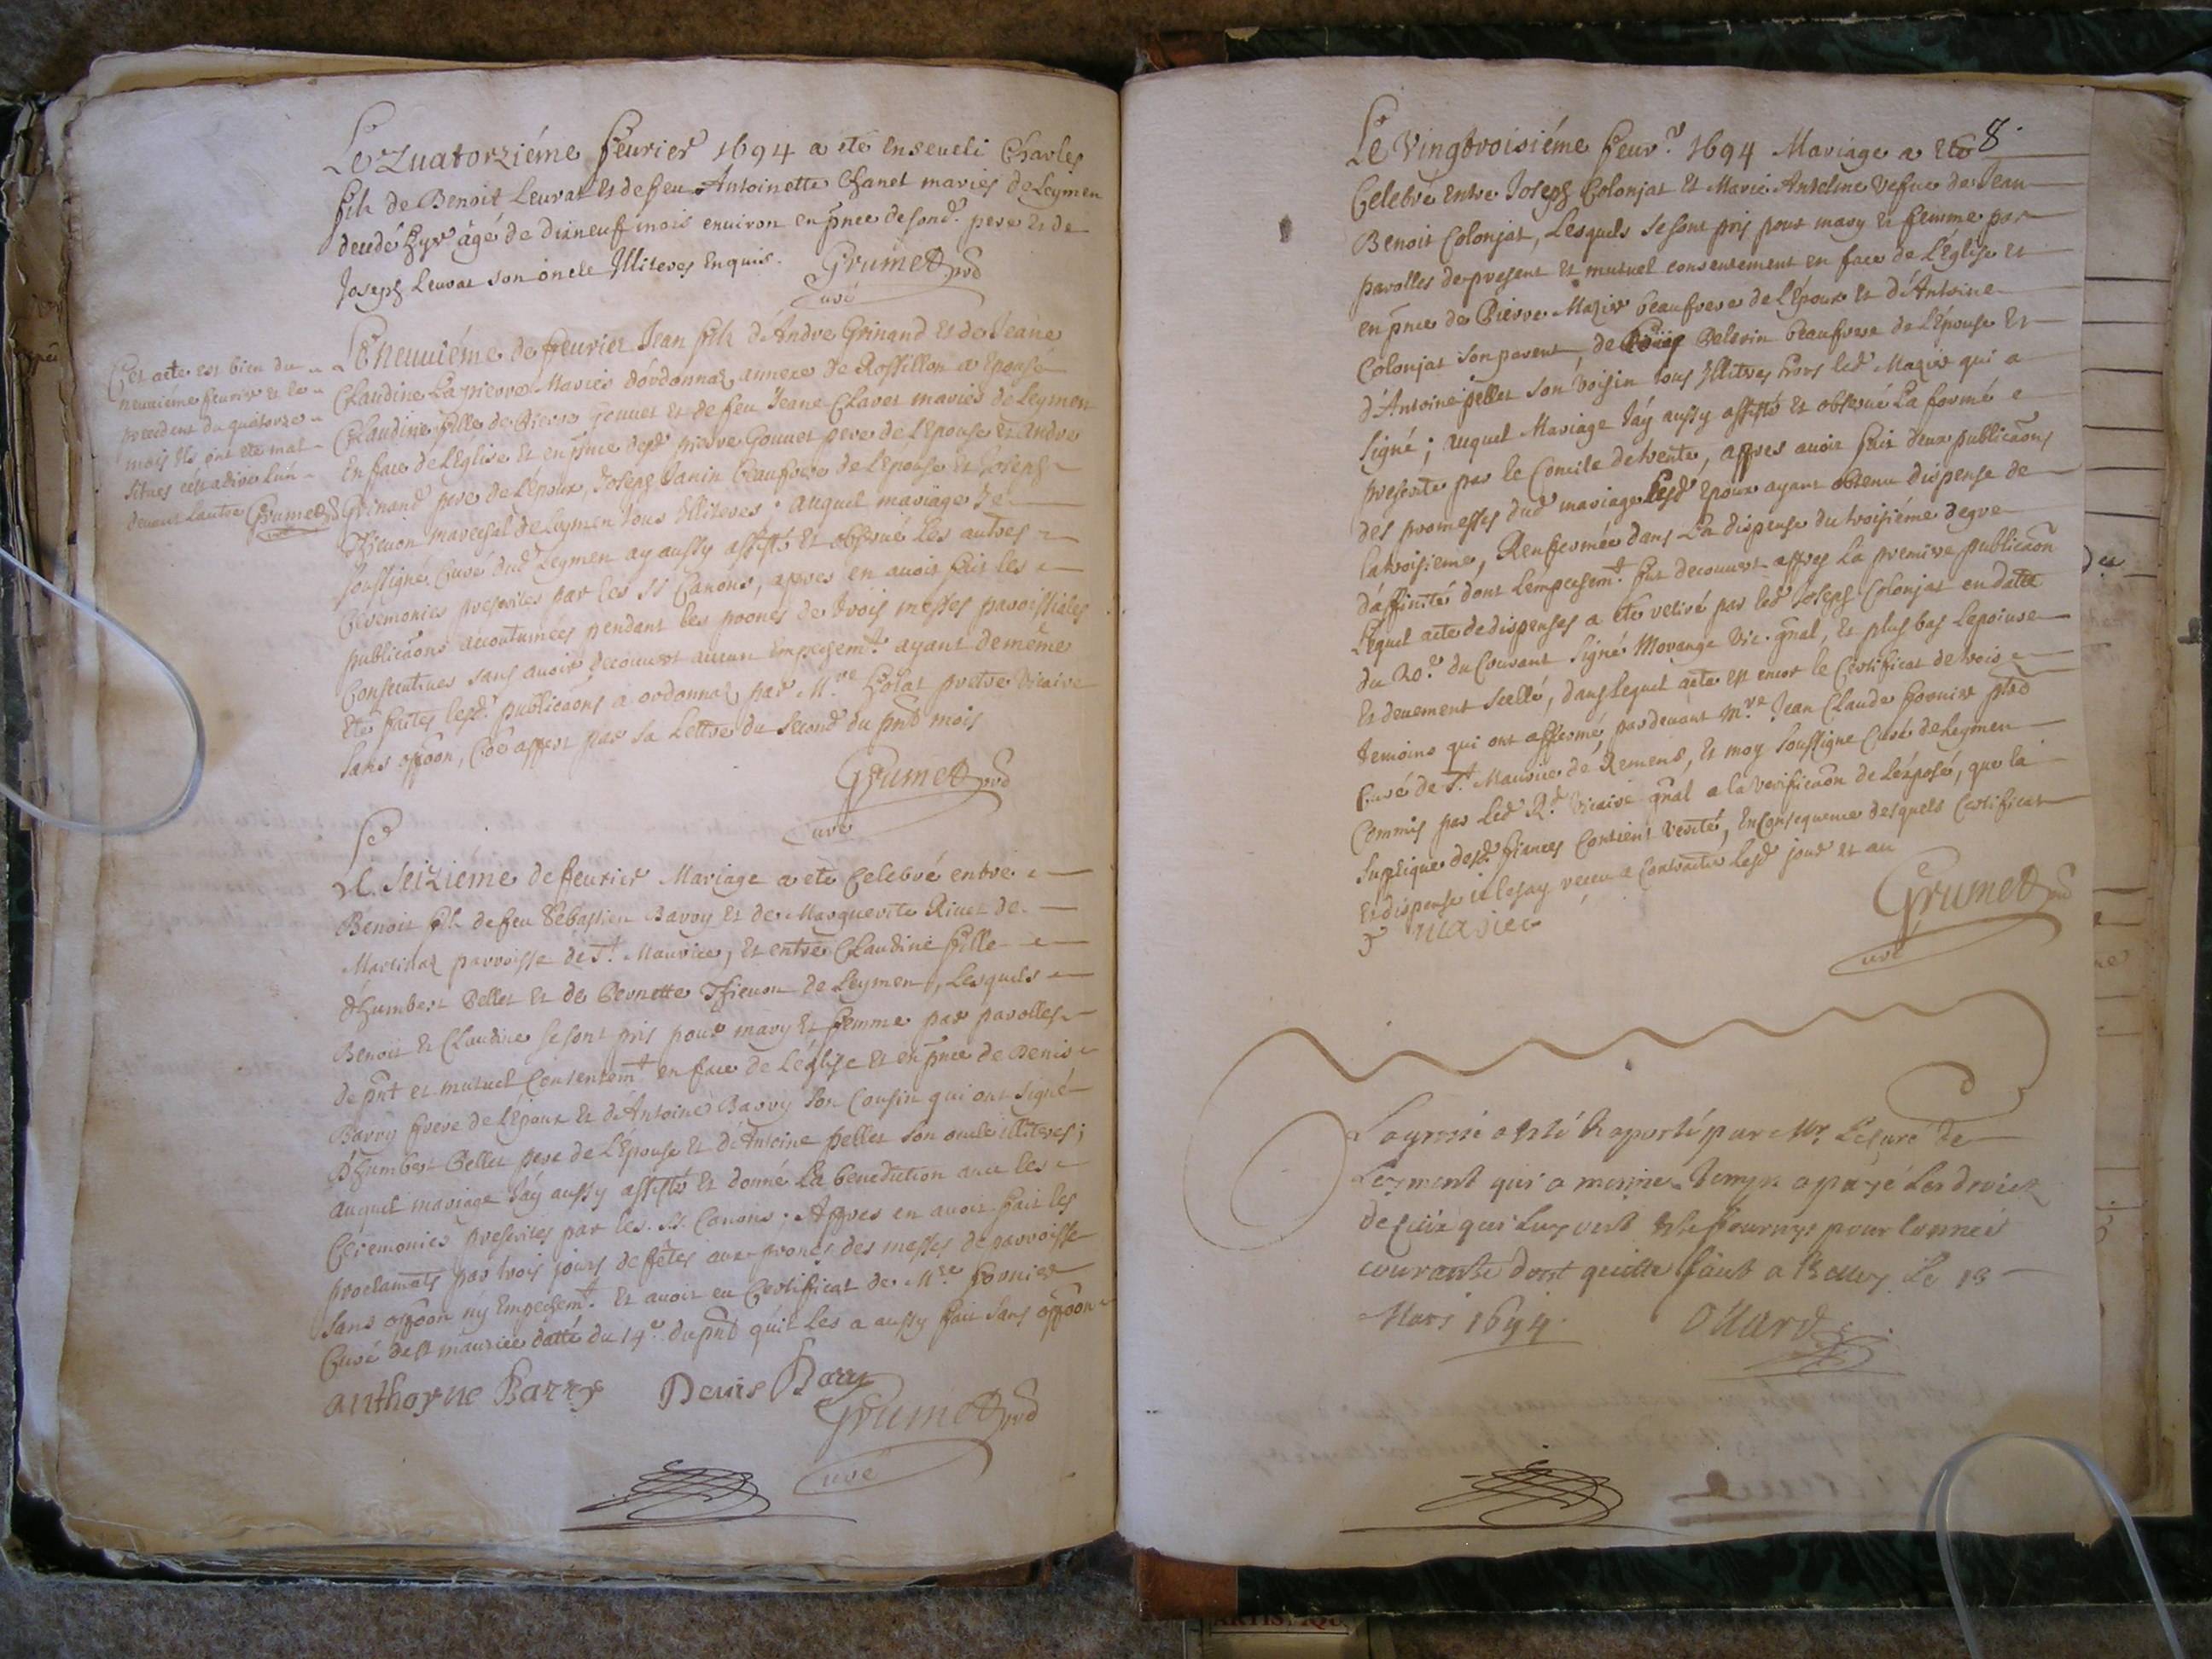 Le quatorziéme feurier 1694 a eté enseueli Charles
fils de Benoit Leurat et de feu Antoinette Chanel mariés de Leymen
decedé hyer âgé de dixneuf mois enuiron en pnce de sond. pere et de
Joseph Leurat son oncle Illiteres Enquis. Grumet prb
Curé
Cet acte est bien du
neuuiéme feurier et le
precedent du quatorze
mois Ils ont eté mal
situes cést adire lún
deuant lautre Grumet
Curé
Le neuuiéme de feurier Jean fils d'Andre Grinand et de Jeane
Claudine Lapierre Mariés dórdonnaz annexe de Rossillon a Epousé
Claudine fille de Pierre Gouuet et de feu Jeane Clavet mariés de Leymen
En face de L'église et en pnce dud pierre Gouuet pere de l'epouse et Andre
Grinand pere de l'époux, Joseph Janin beaufrere de l'épouse et Joseph
Thieuon marechal de Leymen tous Illiteres; auquel mariage Je
soussigné Curé dud Leymen ay aussy assisté et obserué les autres
Ceremonies prescrites par les SS Canons, apres en auoir fait les
publicaons accoutumées pendant les prones de trois messes paroissiales
Consecutiues sans auoir decouuert aucun Empechem.t ayant deméme
Eté faites lesd. publicaons a ordonnaz par M.re Golat pretre vicaire
sans oppoon, Coe appert par sa Lettre du second du pnt mois
Grumet prb
Curé
Le Seizieme de feurier Mariage a eté Celebré entre
Benoit fils de feu Sebastien Barry et de Marguerite Riuet de
Martinaz parroisse de S.t Maurice, et entre Claudine fille
d'humbert Pellet et de Pernette Thieuon de Leymen, Lesquels
Benoit et Claudine se sont pris pour mary et femme par parolles
de pnt et mutuel Consentem.t en face de L'église et en pnce de Denis
Barry frere de l'époux et d'Antoine Barry son Cousin qui ont signé
d'humbert Pellet pere de l'épouse et d'Antoine pellet son oncle illiteres;
auquel mariage Jáy aussy assisté et donné la benediction auec les
Ceremonies prescrites par les SS. Canons; Apres en auoir fait les
proclamats par trois jours de fêtes aux prones des messes de parroisse
sans oppoon ny Empechem.t Et auoir eu Certificat de M.re Fornier
Curé de St maurice datté du 14.e du pnt quíl les a aussy fait sans oppoon
anthoyne Barry Denis Barry
Grumet prb
Curé
8.
Le Vingtroisiéme feur. 1694 Mariage a eté
Celebré entre Joseph Colonjat et Marie Antelme vefue de Jean
Benoit Colonjat, Lesquels se sont pris pour mary et femme par
parolles de present et mutuel consentement en face de L'église et
en pnce de Pierre Mazir beaufrere de l'époux et d'Antoine
Colonjat son parent, de Belorin beaufrere de l'épouse et
d'Antoine pellet son voisin tous Illitres hors led Mazir qui a
signé; auquel Mariage Jáy aussy assisté et obserué la forme
prescrite par le Concile de trente, apres auoir fait deux publicaons
des promesses dud mariage Lesd Epoux ayant obtenu dispense de
la troisieme, Renfermée dans la dispense du troisiéme degre
d'affinité dont lempechem.t fut decouuert apres la premiere publicaon
Lequel acte de dispenses a eté retiré par led Joseph Colonjat en datte
du 20.e du Courant signé Morange vic. gnal, Et plus bas Lepoiure
et deuement scellé, dans lequel acte est encor le Certificat de trois
temoins qui ont affirmé, pardeuant M.re Jean Claude Fornier ptre
Curé de S.t Maurice de Remens, et moy soussigne Curé de Leymen
Commis par led R.d vicaire gnal a la verificaon de l'éxposé, que la
supplique desd. fiances Contient verité, En consequence desquels Certificat
et dispense ie les ay receu a Contracter lesd jour et an
Mazier Grumet prb
Curé
Leymen qui a mesme Temps a payé Les droicts
courante dont quitte faict a Belley Le 13
Mars 1694 Ollard